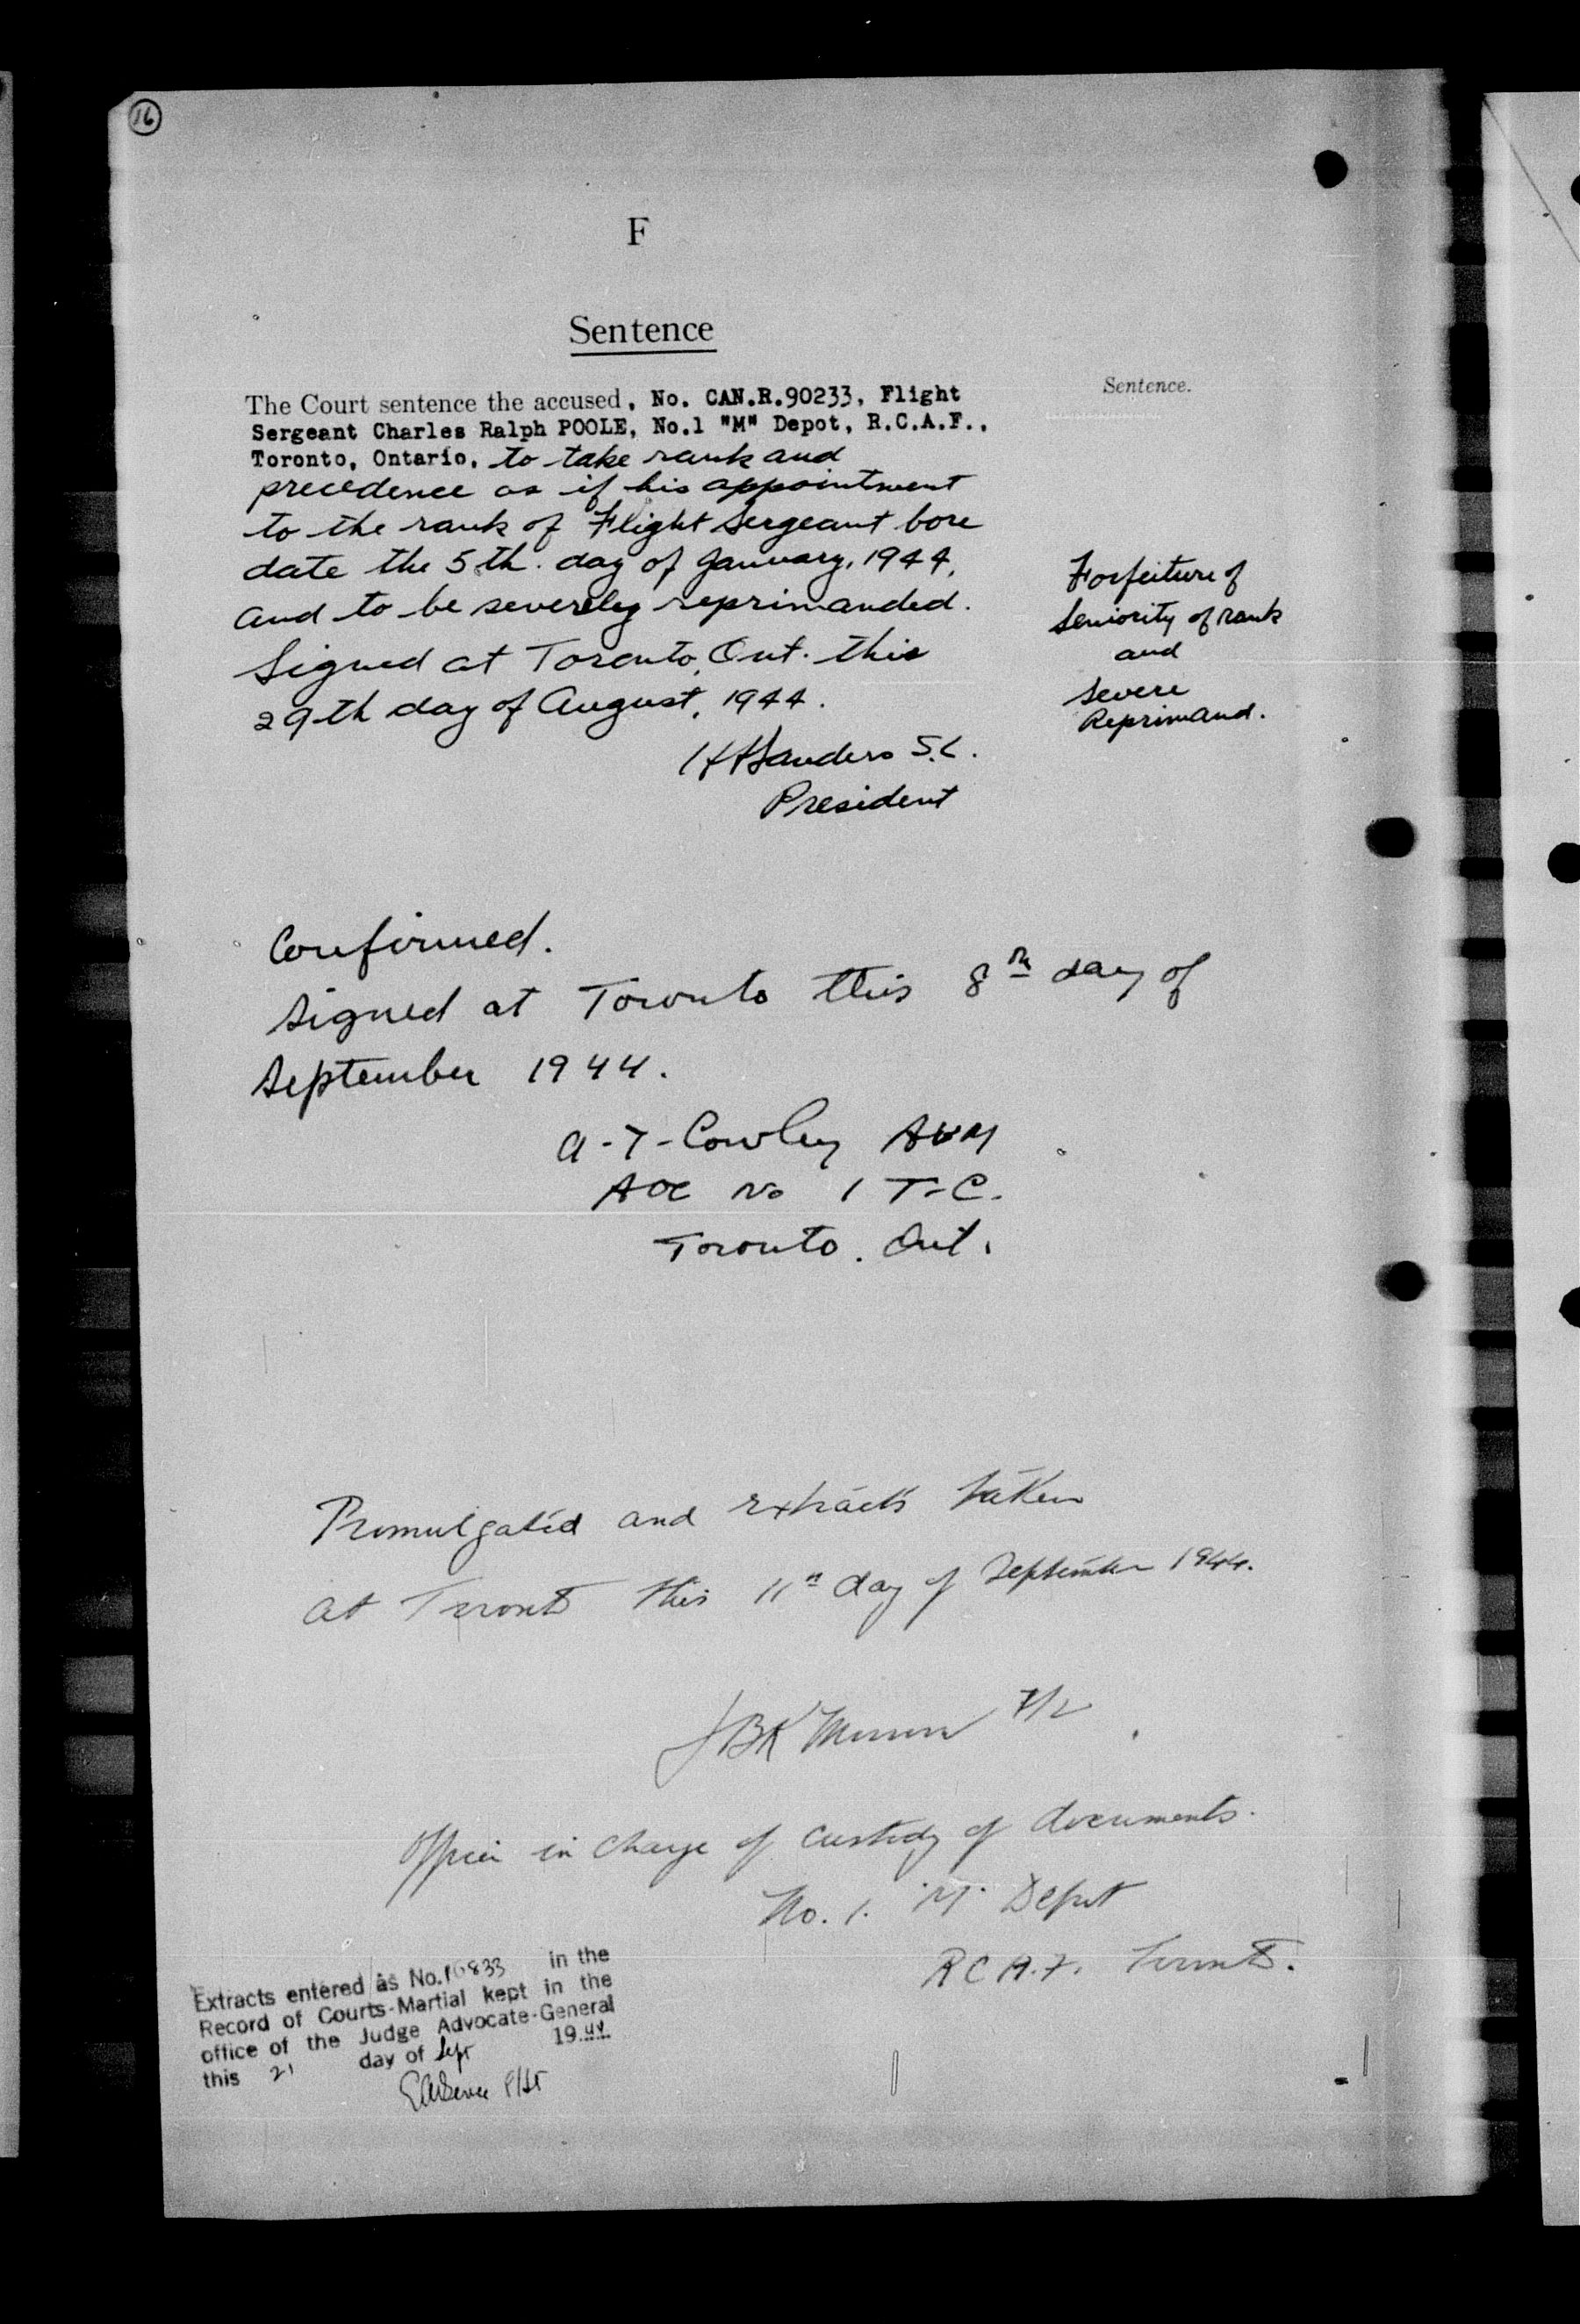 16
F
Sentence
The Court sentence the accused, No. CAN.R.90233, Flight
Sergeant Charles Ralph POOLE, No.1 "M" Depot, R.C.A.F.,
Toronto, Ontario, to take rank and
precedence as if his appointment
to the rank of Flight Sergeant bore
date the 5th. day of January, 1944,
and to be severely reprimanded.
Signed at Toronto, Ont. this
29th day of August, 1944.
Sanders S.L.
President
Sentence.
Forfeiture of
Seniority of rank
and
Severe
Reprimand.
Confirmed.
Signed at Toronto this 8th day of
September 1944.
A-T-Cowley AVM
AOC No 1 T-C.
Toronto. Ont.
Promulgated and extracts taken
at Toronto this 11th day of September 1944.
F/L
Officer in charge of custody of documents.
No. 1. "M" Depot
RCA.F. Toronto.
Extracts entered as No. 16833 in the
Record of Courts-Martial kept in the
office of the Judge Advocate-General
this 21 day of Sept 1944